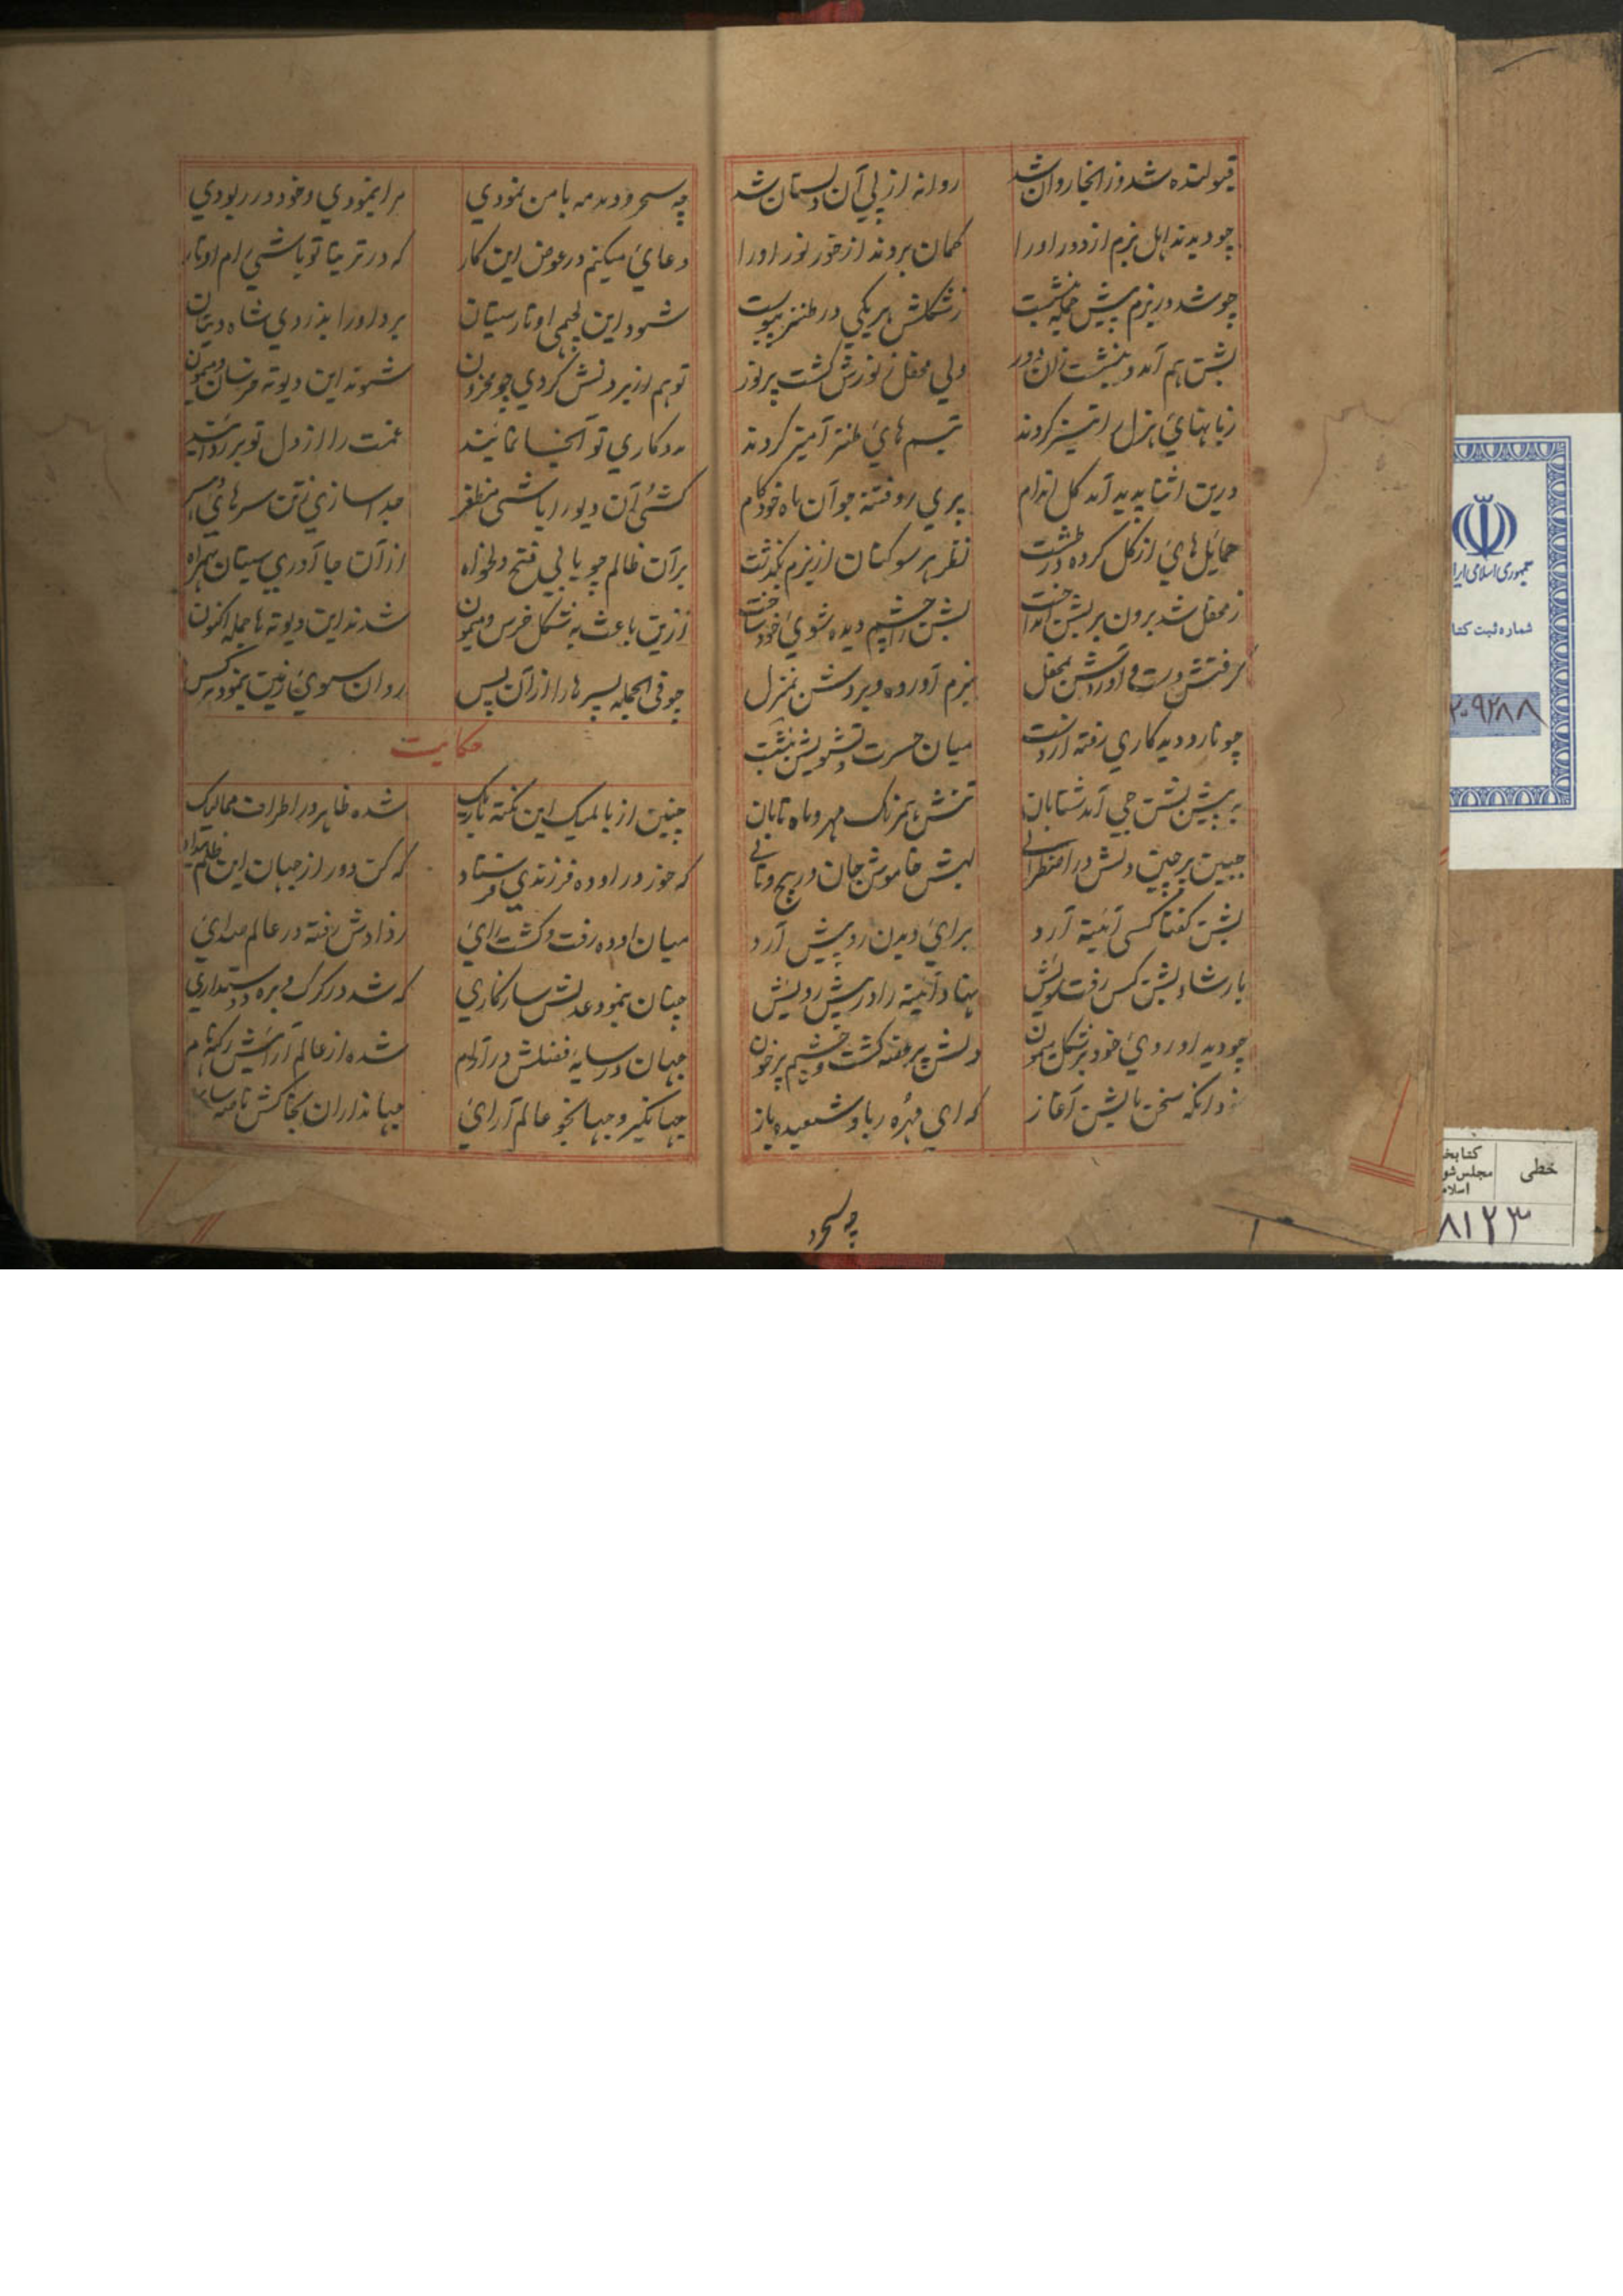 قبولنده شد وز انجا روان شد روانه از پی آن دلستان شد
چو دیدند اهل بزم از دور او را گمان بردند از خور نور او را
چو شد در بزم پیش جمله بنشست ز شکلش هر یکی در طنز پیوست
بشن هم آمد و بنشست زان دور ولی محفل ز نورش گشت پر نور
زبانهای هزل را تیز کردند تبسم های طنز آمیز کردند
درین اثنا پدید آمد گل اندام پری رو فتنه جو آن ماه خودکام
حمایل های از گل کرده در طشت نظر هر سو کنان از بزم بگذشت
ز محفل شد برون بر بشن انداخت بشن را چشم دیده شوی خود ساخت
گرفتش دست و آوردش بمحفل ببزم آورده و بردش بمنزل
چو نارد دید کاری رفته از دست میان حسرت و تشویش بنشست
به پیش بشن جی آمد شتابان تنش همرنگ مهر و ماه تابان
جبین پر چین دلش در اضطرابی لبش خاموش جان در پیچ و تابی
بشن گفتا کسی آئینه آرد برای دیدن رو پیش آرد
بارشاد بشن کس رفت سویش نهاد آئینه را در پیش رویش
چو دید او روی خود بر شکل میمون دلش پر غصه گشت و چشم پر خون
نمود انگه سخن با بشن آغاز که ای مهره ربا و شعبده باز
چه سحر و
چه سحر و دمدمه با من نمودی مرا بنمودی و خود در ربودی
دعای میکنم در عوض این کار که در ترتیا تو باشی رام اوتار
شود این لچهمی اوتار سیتان برد او را بدزدی شاه دیتان
تو هم از بردنش گردی چو محزون شوند این دیوته خرسان و میمون
مددکاری تو آنجا نمایند غمت را از دل تو بر زدایند
کشی آن دیو را باشی مظفر جدا سازی ز تن سرهای
بر آن ظالم چو یابی فتح دلخواه از آن جا آوری سیتان بهمراه
ازین باعث به شکل خرس و میمون شدند این دیوته ها جمله اکنون
چو فی الجمله پسرها را از آن پس روان سوی زمین بنمود
حکایت
چنین از بالمیک این نکته باریک شده ظاهر در اطراف ممالیک
که خور در اوده فرزندی فرستاد که کن دور از جهان این ظلم
میان اوده رفت و گشت رای ز دادش رفته در عالم صدای
چنان بنمود عدلش سازکاری که شد در گرگ و بره دوستداری
جهان در سایهٔ فضلش در آرام شده از عالم آرایش
جهانگیر و جهانجو عالم آرای جهانداران بخاکش
جمهوری اسلامی ایرا
شماره ثبت کتا
۲۰۹۲۸۸
خطی
کتابخ
مجلس شو
اسلام
۸۱۲۳